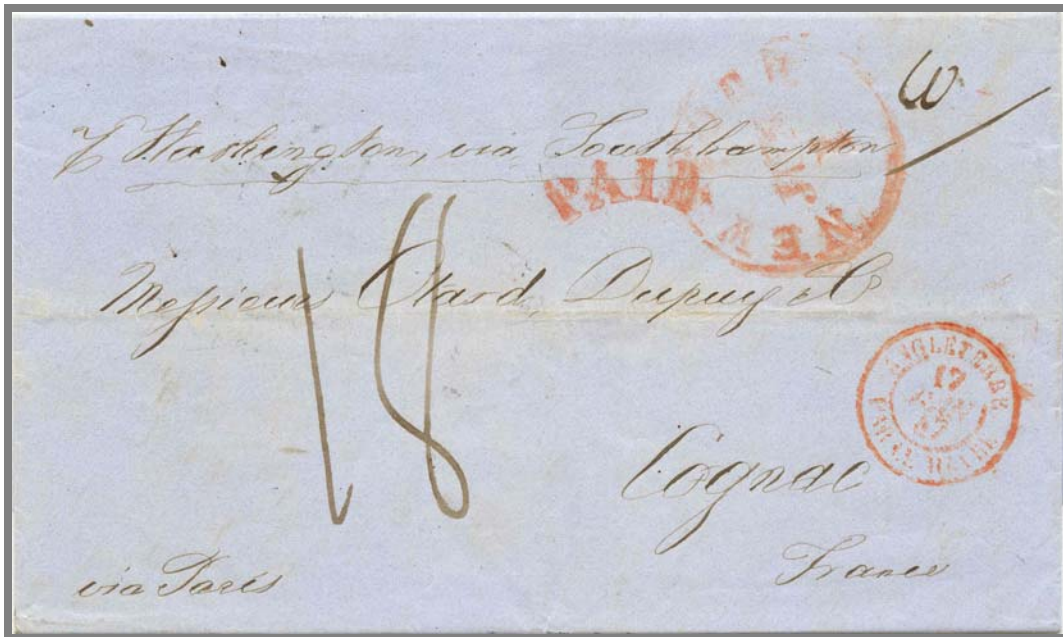 W
℘ Washington, via Southhampton
PAID
NEW
Messieurs Otard, Dupuy & Co
ANGLETERRE
17
PAR LE HAVRE
18
Cognac
France
via Paris